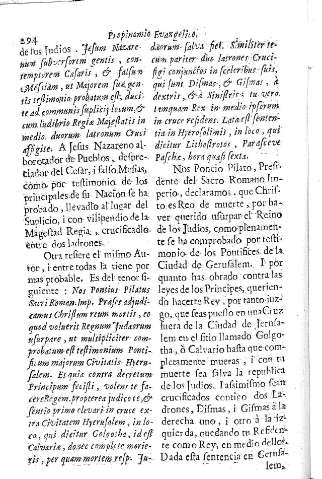 294
Propinomio Evangelico.
de los Judios. Jesum Nazare-
num subversorem gentis, con-
temptorem Cæsaris, & falsum
Messiam, ut Majorem suæ gen-
tis testimonio probatum est, duci-
te ad communis suplicij locum, &
cum ludibrio Regiæ Majestatis in
medio duorum latronum Cruci
affigite. A Jesus Nazareno al-
borotador de Pueblos, despre-
ciador del Cesar, i falso Mesias,
como por testimonio de los
principales de su Nacion se ha
probado, llevadlo al lugar del
Suplicio, i con vilipendio de la
Magestad Regia, crucificadlo
entre dos ladrones.
Otra refiere el mismo Au-
tor, i entre todas la viene por
mas probable. Es del tenor si-
guiente: Nos Pontius Pilatus
Sacri Roman. Imp. Præses adjudi-
camus Christum reum mortis, eo
quod voluerit Regnum Judæorum
usurpare, ut multipliciter com-
probatum est testimonium Ponti-
ficum majorum Civitatis Hieru-
salem. Et quia contra decretum
Principum fecisti, volens te fa-
cere Regem, propterea judico te, &
sentio primo elevari in cruce ex-
tra Civitatem Hyerusalem, in lo-
co, qui dicitur Golgotha, id est
Calvariæ, donec complete moria-
ris, per quam mortem resp. Ju-
dæorum salva fiet. Similiter te-
cum pariter duo latrones Cruci-
figi conjunctos in sceleribus suis,
qui sunt Dismas, & Gismas, à
dextris, & à sinistris; tu vero
tanquam Rex in medio ipsorum
in cruce residens. Lata est senten-
tia in Hyerosolimis, in loco, qui
dicitur Lithostrotos, Parasceve
Paschæ, hora quasi sexta.
Nos Poncio Pilato, Presi-
dente del Sacro Romano Im-
perio, declaramos, que Chris-
to es Reo de muerte, por ha-
ver querido usurpar el Reino
de los Judios, como plenamen-
te se ha comprobado por testi-
monio de los Pontifices de la
Ciudad de Gerusalem. I por
quanto has obrado contra las
leyes de los Principes, querien-
do hacerte Rey, por tanto juz-
go, que seas puesto en una Cruz
fuera de la Ciudad de Jerusa-
lem en el sitio llamado Golgo-
tha, ò Calvario hasta que com-
pletamente mueras, i con tu
muerte sea salva la republica
de los Judios. I asimismo sean
crucificados contigo dos La-
drones, Dismas, i Gismas à la
derecha uno, i otro à la iz-
quierda, quedando tu Residen-
te como Rey, en medio dellos.
Dada esta sentencia en Gerusa-
lem,